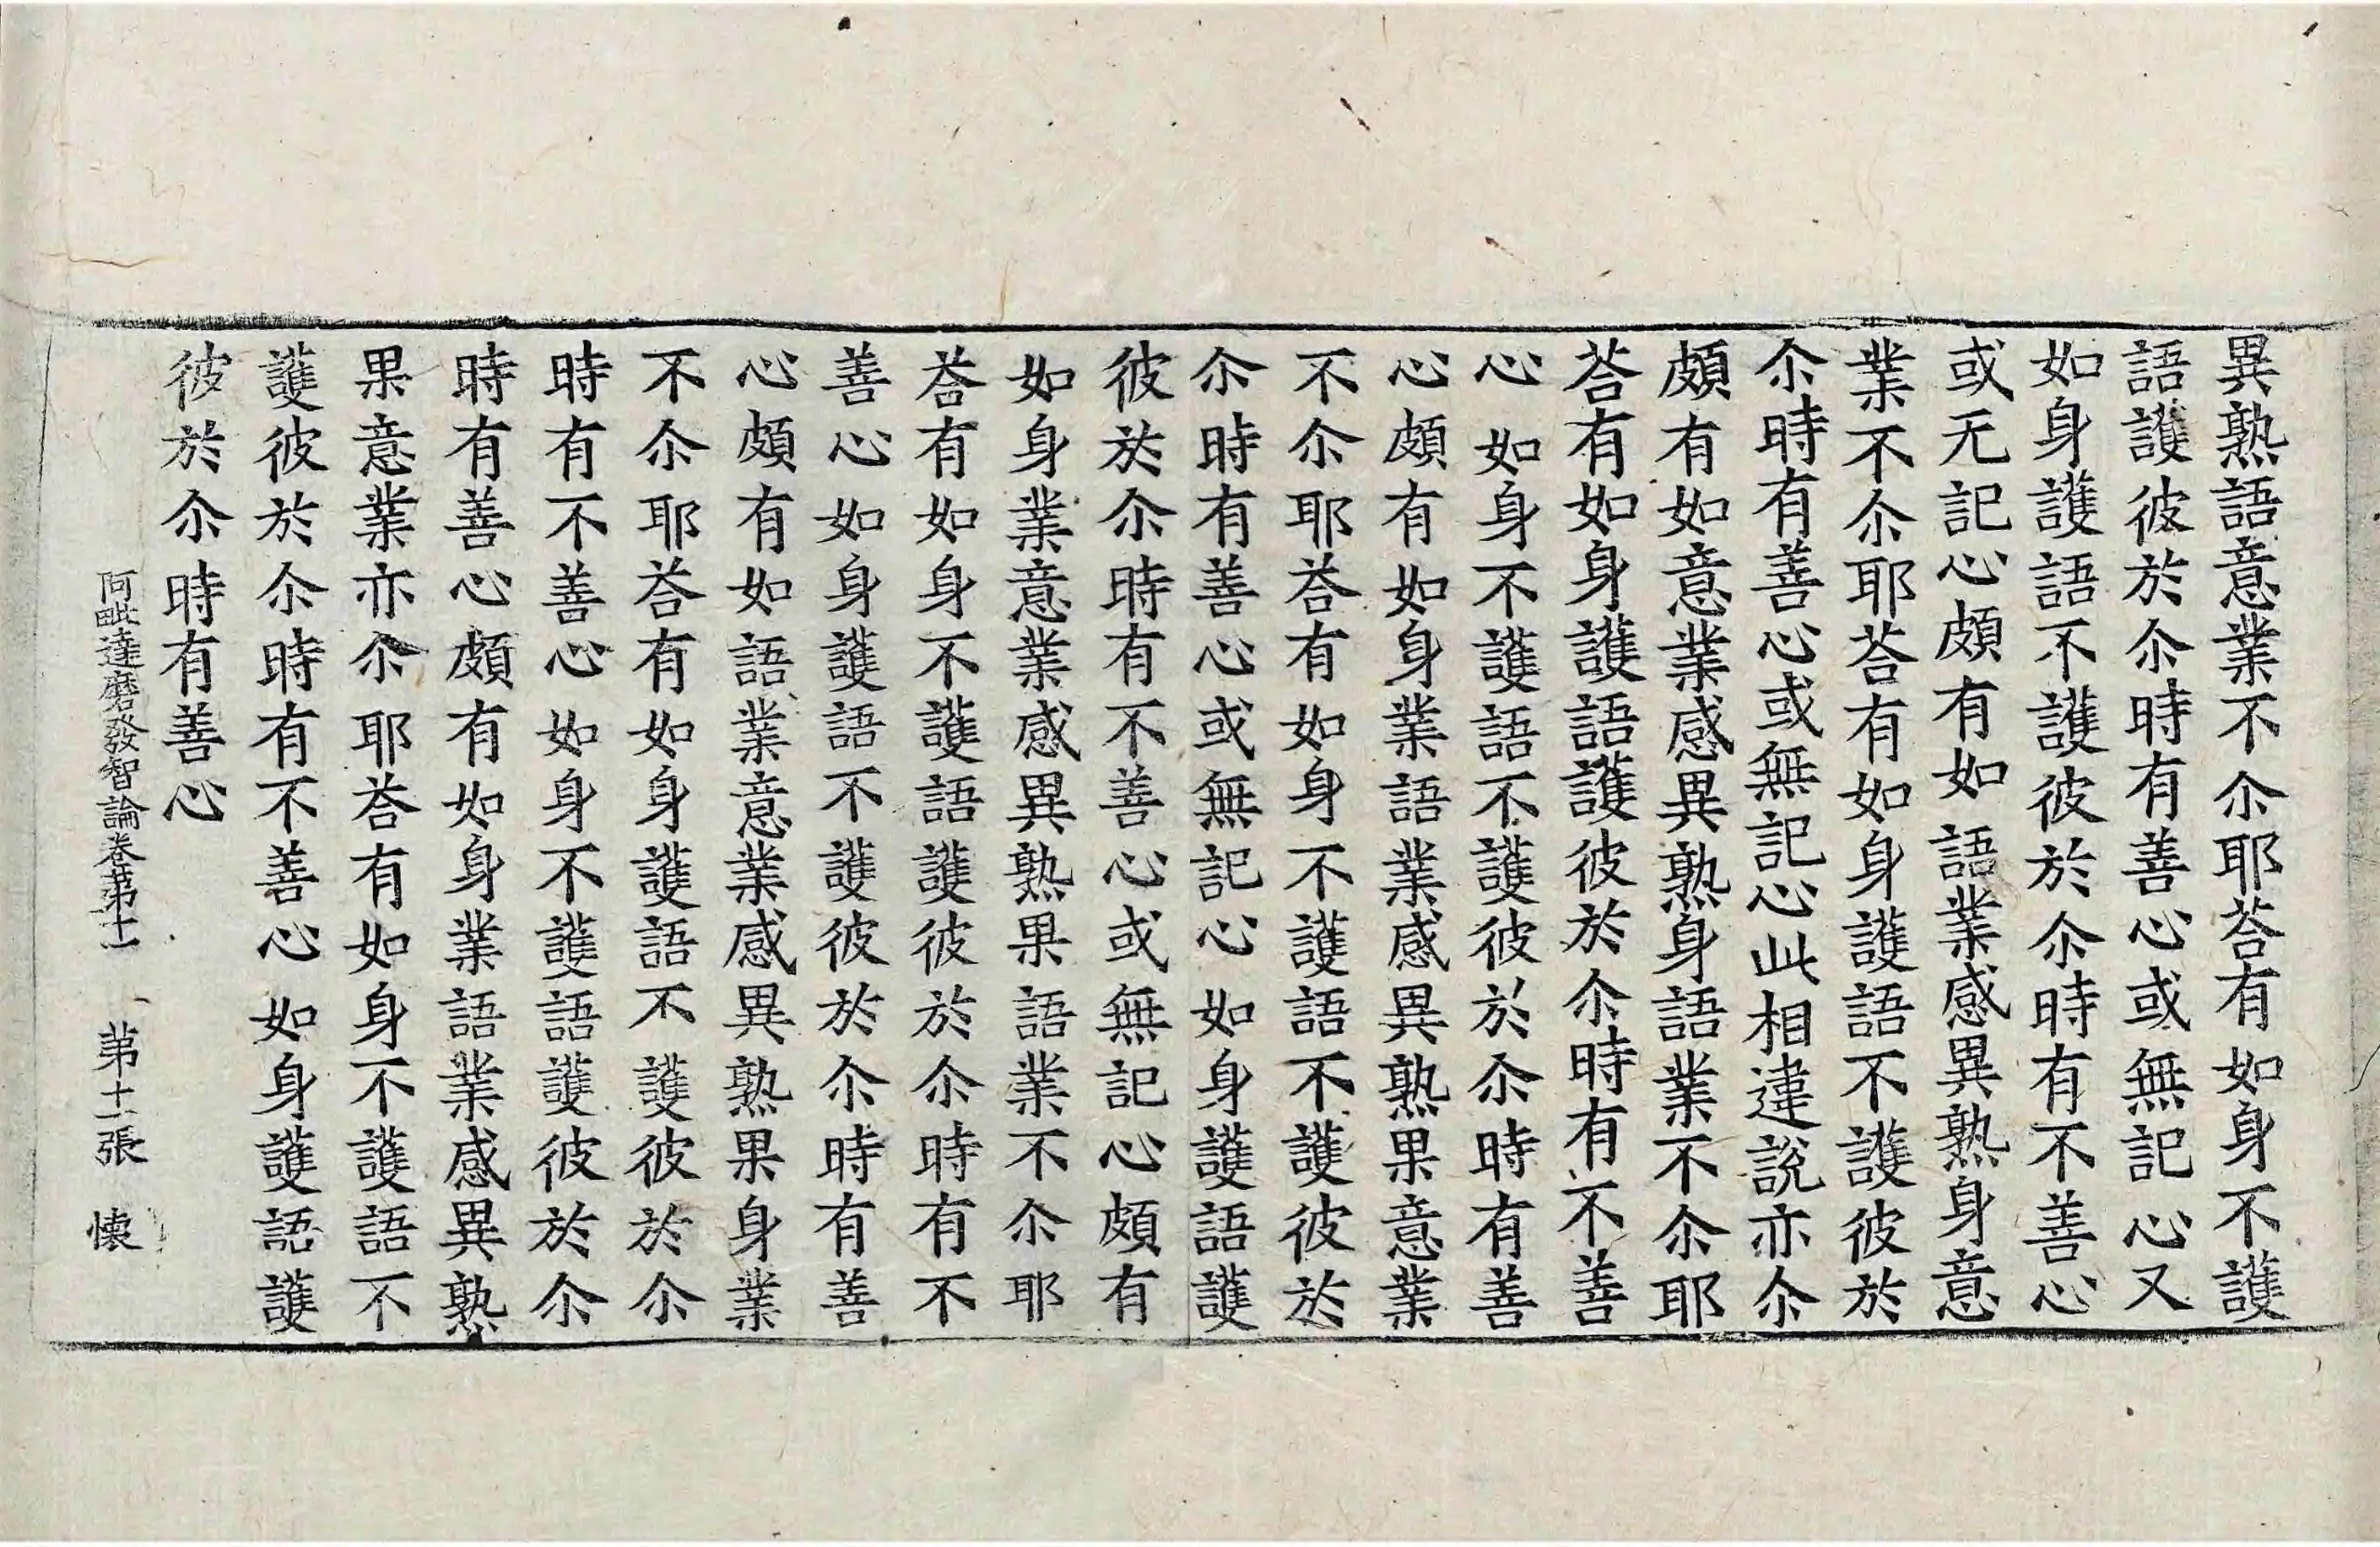 異熟語意業不尒耶荅有如身不護
語護彼於尒時有善心或無記心又
如身護語不護彼於尒時有不善心
或无記心頗有如語業感異熟身意
業不尒耶荅有如身護語不護彼於
尒時有善心或無記心此相違說亦尒
頗有如意業感異熟身語業不尒耶
荅有如身護語護彼於尒時有不善
心如身不護語不護彼於尒時有善
心頗有如身業語業感異熟果意業
不尒耶荅有如身不護語不護彼於
尒時有善心或無記心如身護語護
彼於尒時有不善心或無記心頗有
如身業意業感異熟果語業不尒耶
荅有如身不護語護彼於尒時有不
善心如身護語不護彼於尒時有善
心頗有如語業意業感異熟果身業
不尒耶荅有如身護語不護彼於尒
時有不善心如身不護語護彼於尒
時有善心頗有如身業語業感異熟
果意業亦尒耶荅有如身不護語不
護彼於尒時有不善心如身護語護
彼於尒時有善心
阿毗達磨發智論卷苐十一　苐十一張　懐